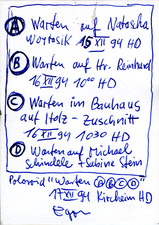 A Warten auf Natascha
Wortosik 15 XII 94 HD
B Warten auf Hr. Reinhard
16 XII 94 10⁰⁰ HD
C Warten im Bauhaus
auf Holz - Zuschnitt
16 XII 94 1030 HD
D Warten auf Michael
Schindele + Sabine Stein
Polaroid "Warten A B C D"
17 XII 94 Kirchheim HD
Egon